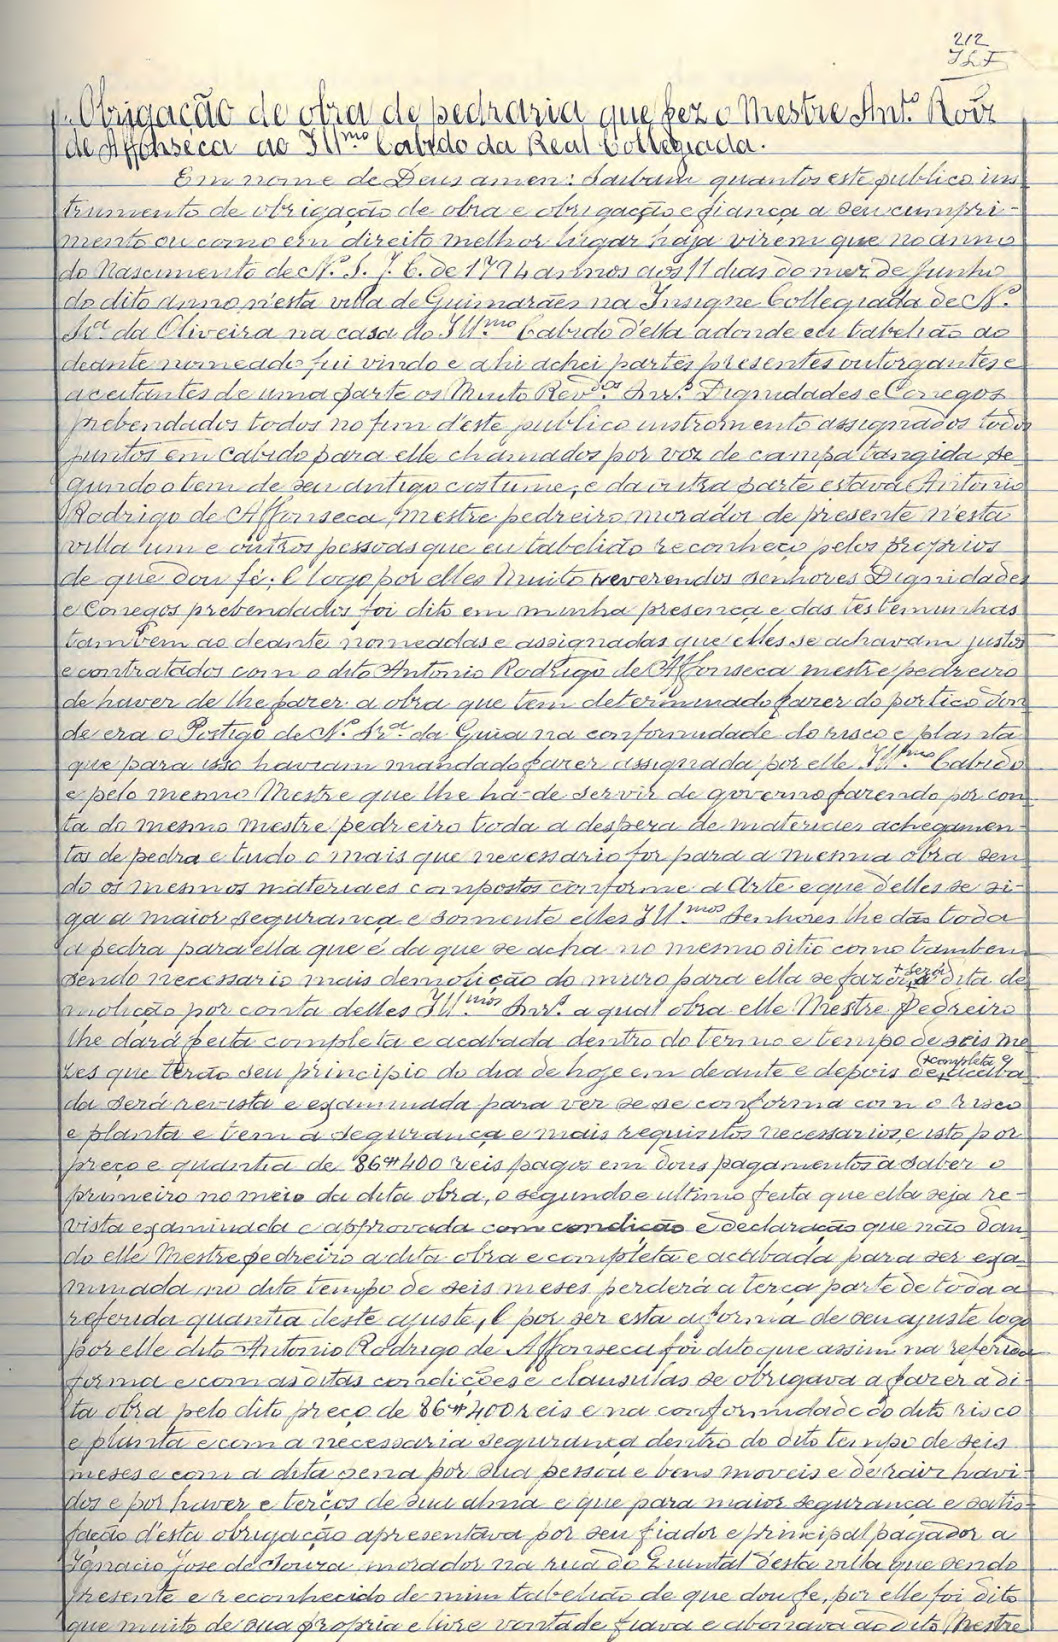 212
JLF
Obrigação de obra de pedraria que fez o Mestre Ant.º Roiz
de Affonseca ao Ill.mo Cabido da Real Collegiada.
Em nome de Deus amen: Saibam quantos este publico ins-
trumento de obrigação de obra e obrigacção e fiança a seu cumpri-
mento ou como em direito melhor lugar haja virem que no anno
do Nascimento de N. S. J. C. de 1794 annos aos 11 dias do mez de Junho
do dito anno n'esta villa de Guimarães na Insigne Collegiada de N.ª
Sr.ª da Oliveira na casa do Ill.mo Cabido d'ella adonde eu tabelião ao
deante nomeado fui vindo e ahi achei partes presentes outorgantes e
aceitantes de uma parte os Muito Rev.dos Snr.s Dignidades e Conegos
prebendados todos no fim d'este publico instromento assignados todos
juntos em Cabido para elle chamados por voz de campa tangida se-
gundo o tem de seu antigo costume, e da outra parte estava Antonio
Rodrigo de Affonseca, mestre pedreiro morador de presente n'esta
villa um e outros pessoas que eu tabelião reconheço pelos proprios
de que dou fé; E logo por elles Muito reverendos senhores Dignidades
e Conegos prebendados foi dito em minha presença e das testemunhas
tambem ao deante nomeadas e assignadas que elles se achavam justos
e contratados com o dito Antonio Rodrigo de Affonseca mestre pedreiro
de haver de lhe fazer a obra que tem determinado fazer do portico don-
de era o Postigo de N.ª Sr.ª da Guia na conformidade do risco e planta
que para isso haviam mandado fazer assignada por elle Ill.mo Cabido
e pelo mesmo Mestre que lhe há-de servir de governo fazendo por con-
ta do mesmo mestre pedreiro toda a despeza de materiaes achegamen-
tos de pedra e tudo o mais que necessario for para a mesma obra sen-
do os mesmos materiaes compostos conforme a Arte e que d'elles se si-
ga a maior segurança e somente elles Ill.mos Senhores lhe dão toda
a pedra para ella que é da que se acha no mesmo sitio como tambem
sendo necessario mais demolição do muro para ella se fazer + será a dita de
molição por conta delles Ill.mos Snr.s a qual obra elle Mestre Pedreiro
lhe dará feita completa e acabada dentro do termo e tempo de seis me-
zes que terão seu principio do dia de hoje em deante e depois de + completa e acaba-
da será revista e examinada para ver se se conforma com o risco
e planta e tem a segurança e mais requisitos necessarios, e isto por
preço e quantia de 86#400 reis pagos em dous pagamentos a saber o
primeiro no meio da dita obra, o segundo e ultimo feita que ella seja re-
vista examinada e approvada com condição e declaração que não dan-
do elle Mestre pedreiro a dita obra e completa e acabada para ser exa-
minada no dito tempo de seis meses perderá a terça parte de toda a
referida quantia deste ajuste, E por ser esta a forma de seu ajuste logo
por elle dito Antonio Rodrigo de Affonseca foi dito que assim na referida
forma e com as ditas condições e clausulas se obrigava a fazer a di-
ta obra pelo dito preço de 86#400 reis e na conformidade do dito risco
e planta e com a necessaria segurança dentro do dito tempo de seis
meses e com a dita pena por sua pessoa e bens moveis e de raiz havi-
dos e por haver e terços de sua alma e que para maior segurança e satis-
fação d'esta obrigação apresentava por seu fiador e principal pagador a
Ignacio José de Souza morador na rua do Quintal desta villa que sendo
presente e reconhecido de mim tabelião de que dou fe, por elle foi dito
que muito de sua propria e livre vontade fiava e abonava ao dito Mestre